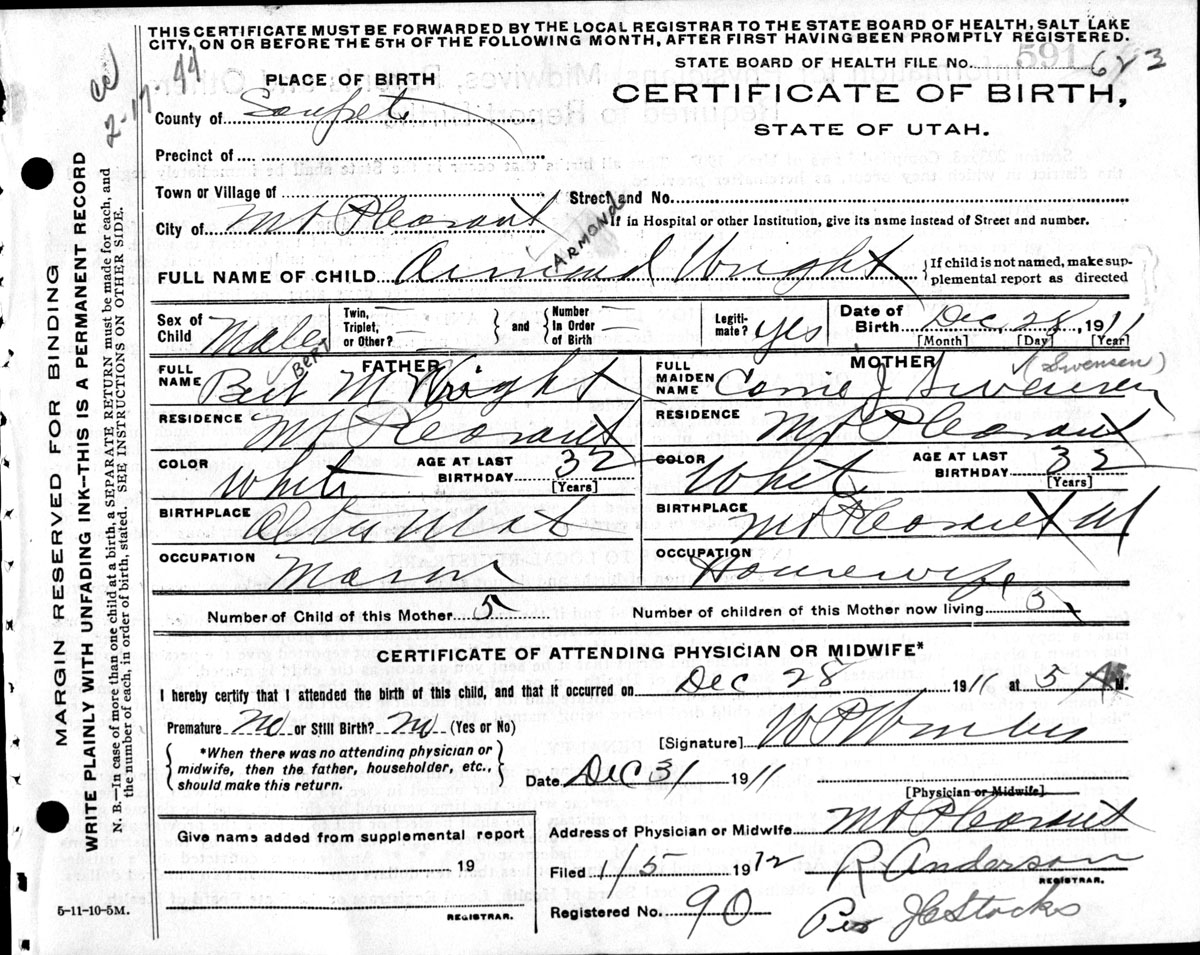 THIS CERTIFICATE MUST BE FORWARDED BY THE LOCAL REGISTRAR TO THE STATE BOARD OF HEALTH, SALT LAKE
CITY, ON OR BEFORE THE 5TH OF THE FOLLOWING MONTH, AFTER FIRST HAVING BEEN PROMPTLY REGISTERED.
2-17-44
591
STATE BOARD OF HEALTH FILE No. 623
PLACE OF BIRTH
CERTIFICATE OF BIRTH,
STATE OF UTAH.
County of Sanpete
Precinct of
Town or Village of
Street and No.
City of Mt Pleasant
If in Hospital or other Institution, give its name instead of Street and number.
ARMOND
FULL NAME OF CHILD Armond Wright
{If child is not named, make sup-
plemental report as directed
Sex of Child Male
Twin, Triplet, or Other? —
and
Number In Order of Birth —
Legiti-mate? Yes
Date of Birth Dec 28 1911
[Month] [Day] [Year]
BERT
FATHER
FULL NAME Bert M Wright
MOTHER
(Swensen)
FULL MAIDEN NAME J Swensen
RESIDENCE Mt Pleasant
RESIDENCE Mt Pleasant
COLOR White
AGE AT LAST BIRTHDAY 32
[Years]
COLOR White
AGE AT LAST BIRTHDAY 32
[Years]
BIRTHPLACE
BIRTHPLACE Mt Pleasant Ut
OCCUPATION
OCCUPATION Housewife
Number of Child of this Mother 5
Number of children of this Mother now living 5
CERTIFICATE OF ATTENDING PHYSICIAN OR MIDWIFE*
I hereby certify that I attended the birth of this child, and that it occurred on Dec 28 1911 at 5 A M.
Premature No or Still Birth? No (Yes or No)
[Signature]
*When there was no attending physician or
midwife, then the father, householder, etc.,
should make this return.
Date Dec 31 1911
[Physician or Midwife]
Give name added from supplemental report
19
REGISTRAR.
Address of Physician or Midwife Mt Pleasant
Filed 1/5 1912
R Anderson
REGISTRAR.
Registered No. 90
Per J C Stocks
5-11-10-5M.
MARGIN RESERVED FOR BINDING
WRITE PLAINLY WITH UNFADING INK—THIS IS A PERMANENT RECORD
N. B.—In case of more than one child at a birth, a SEPARATE RETURN must be made for each, and
the number of each, in order of birth, stated. SEE INSTRUCTIONS ON OTHER SIDE.